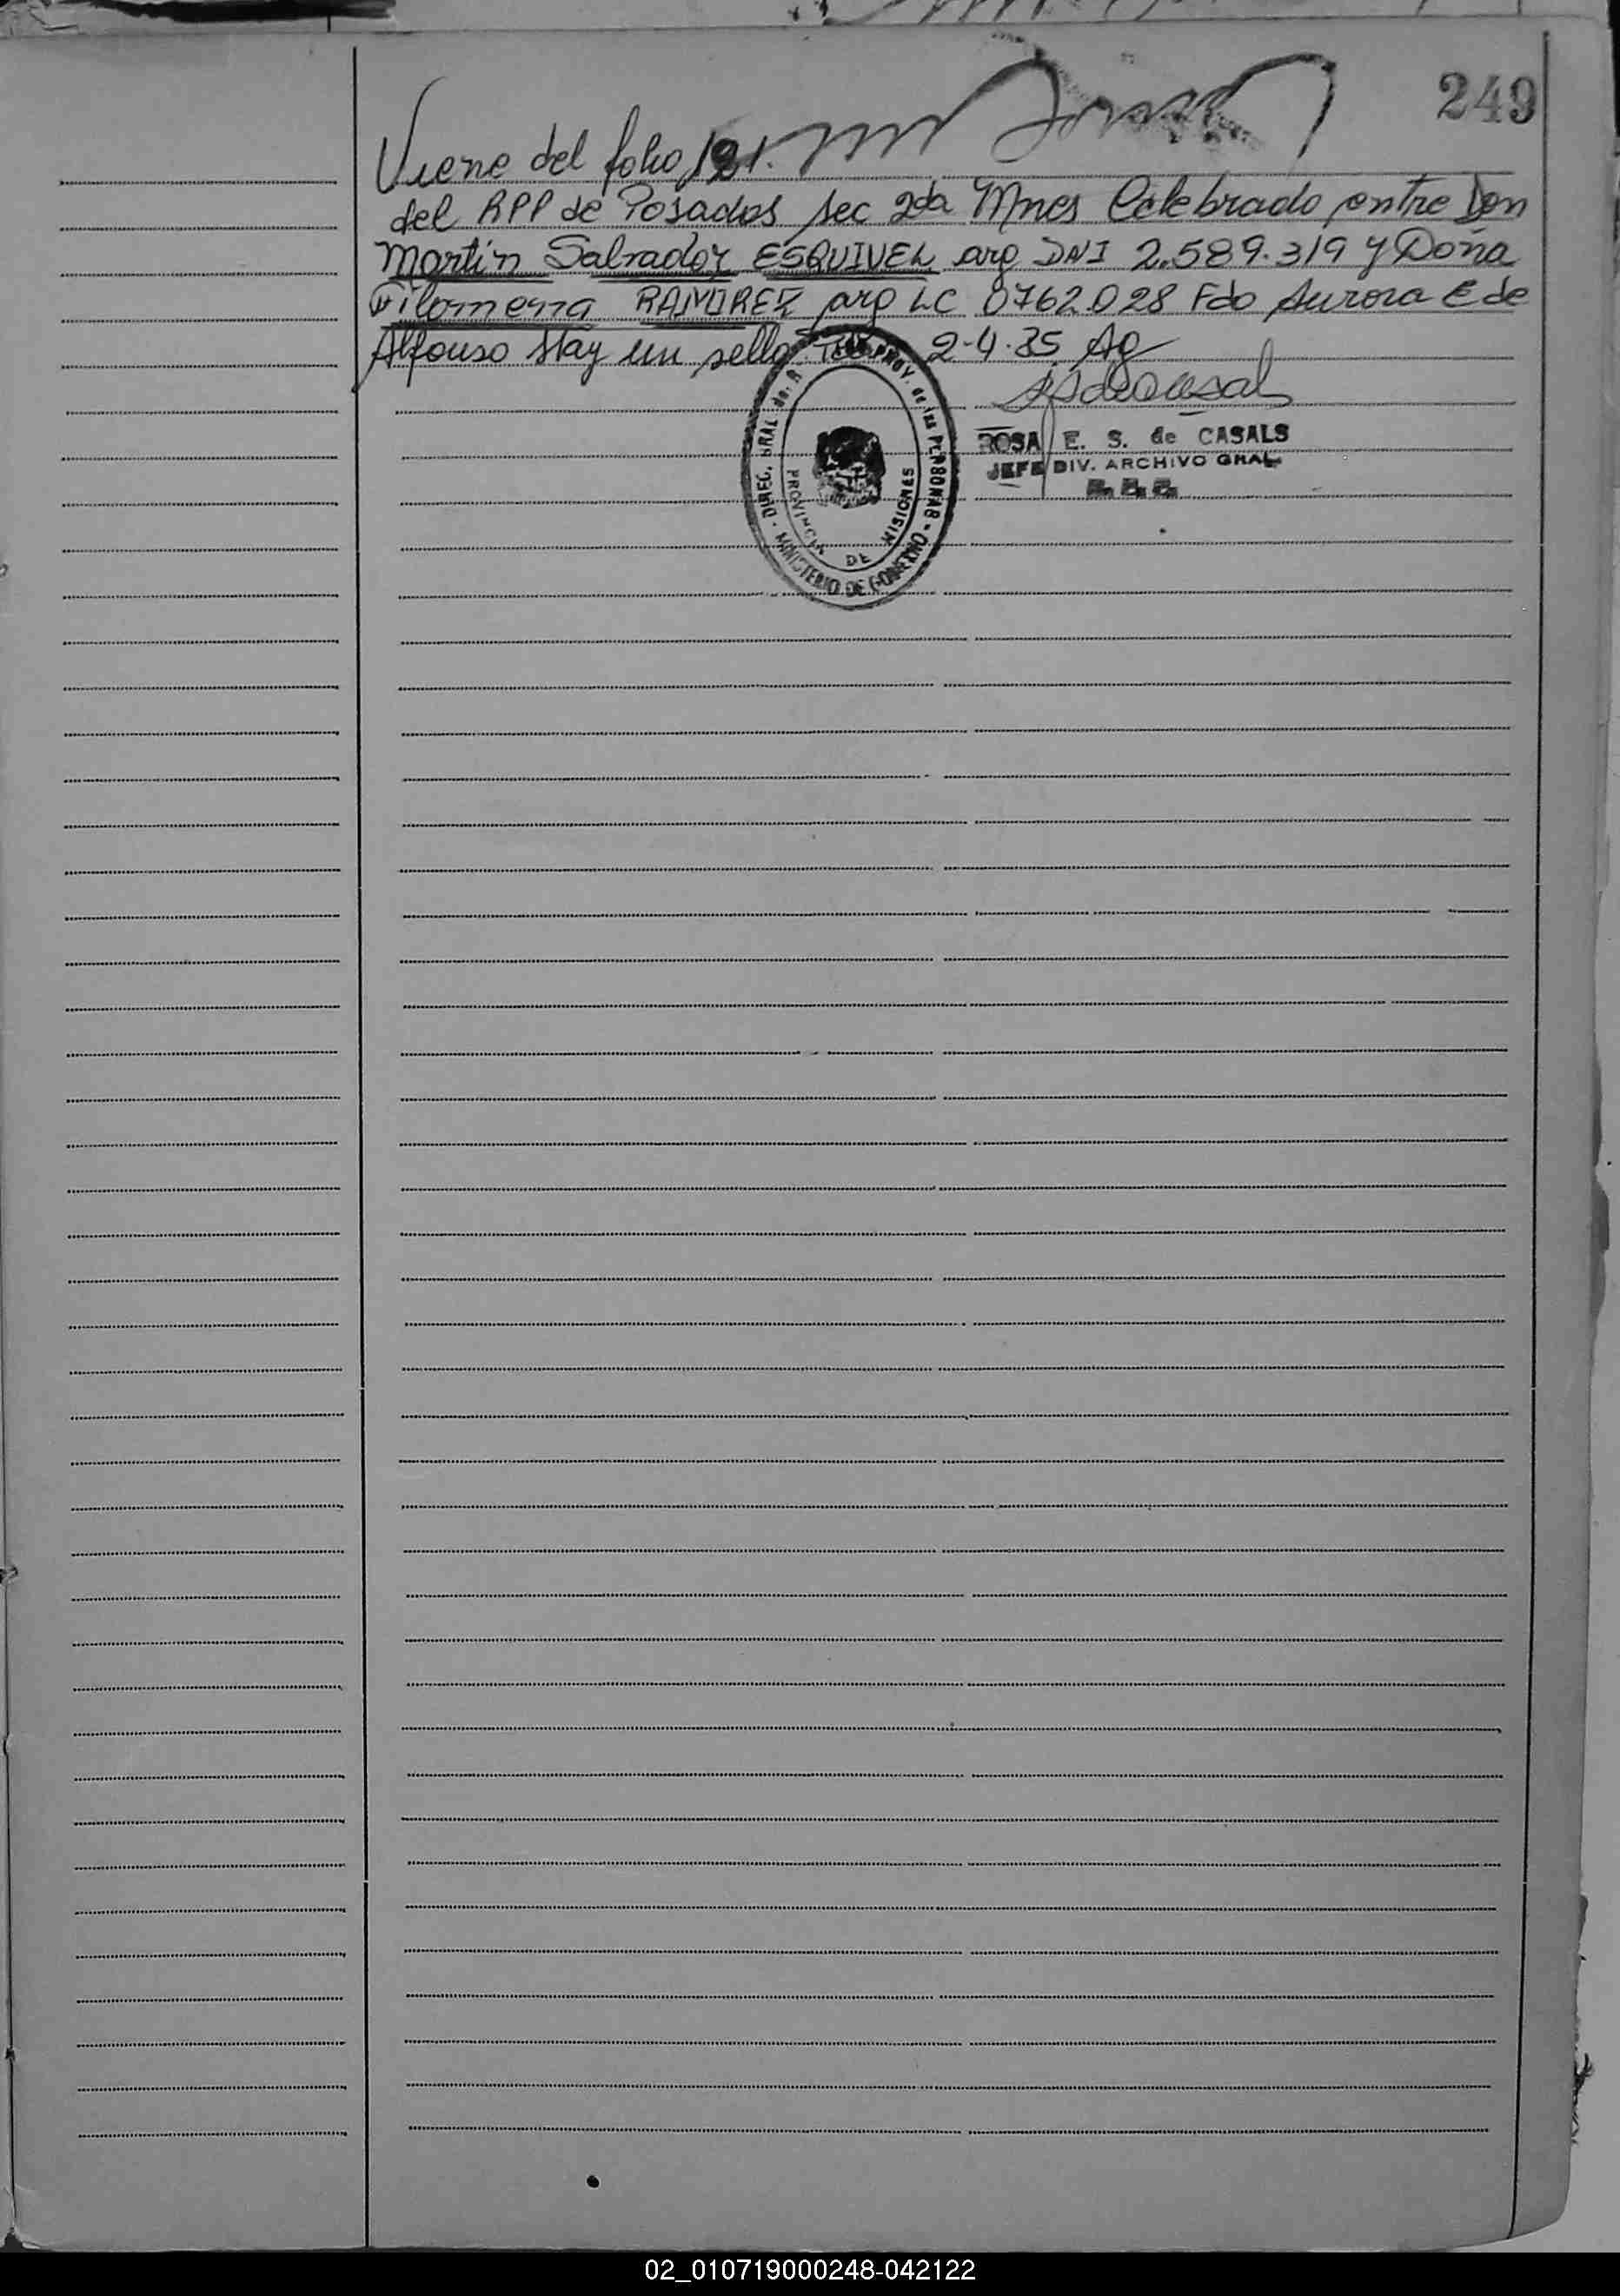 249
Viene del folio 191.
del RPP de Posadas sec 2da Mnes Celebrado entre Don
Martin Salvador ESQUIVEL arg DNI 2.589.319 y Doña
Filomena RAMIREZ arg LC 0762028 Fdo Aurora E de
Alfonso Hay un sello 2-4-85 Ag
DIREC. GRAL de. R PROV. de las PERSONAS - MINISTERIO DE GOBIERNO -
PROVINCIA DE MISIONES
ROSA E. S. de CASALS
JEFE DIV. ARCHIVO GRAL
02_010719000248-042122